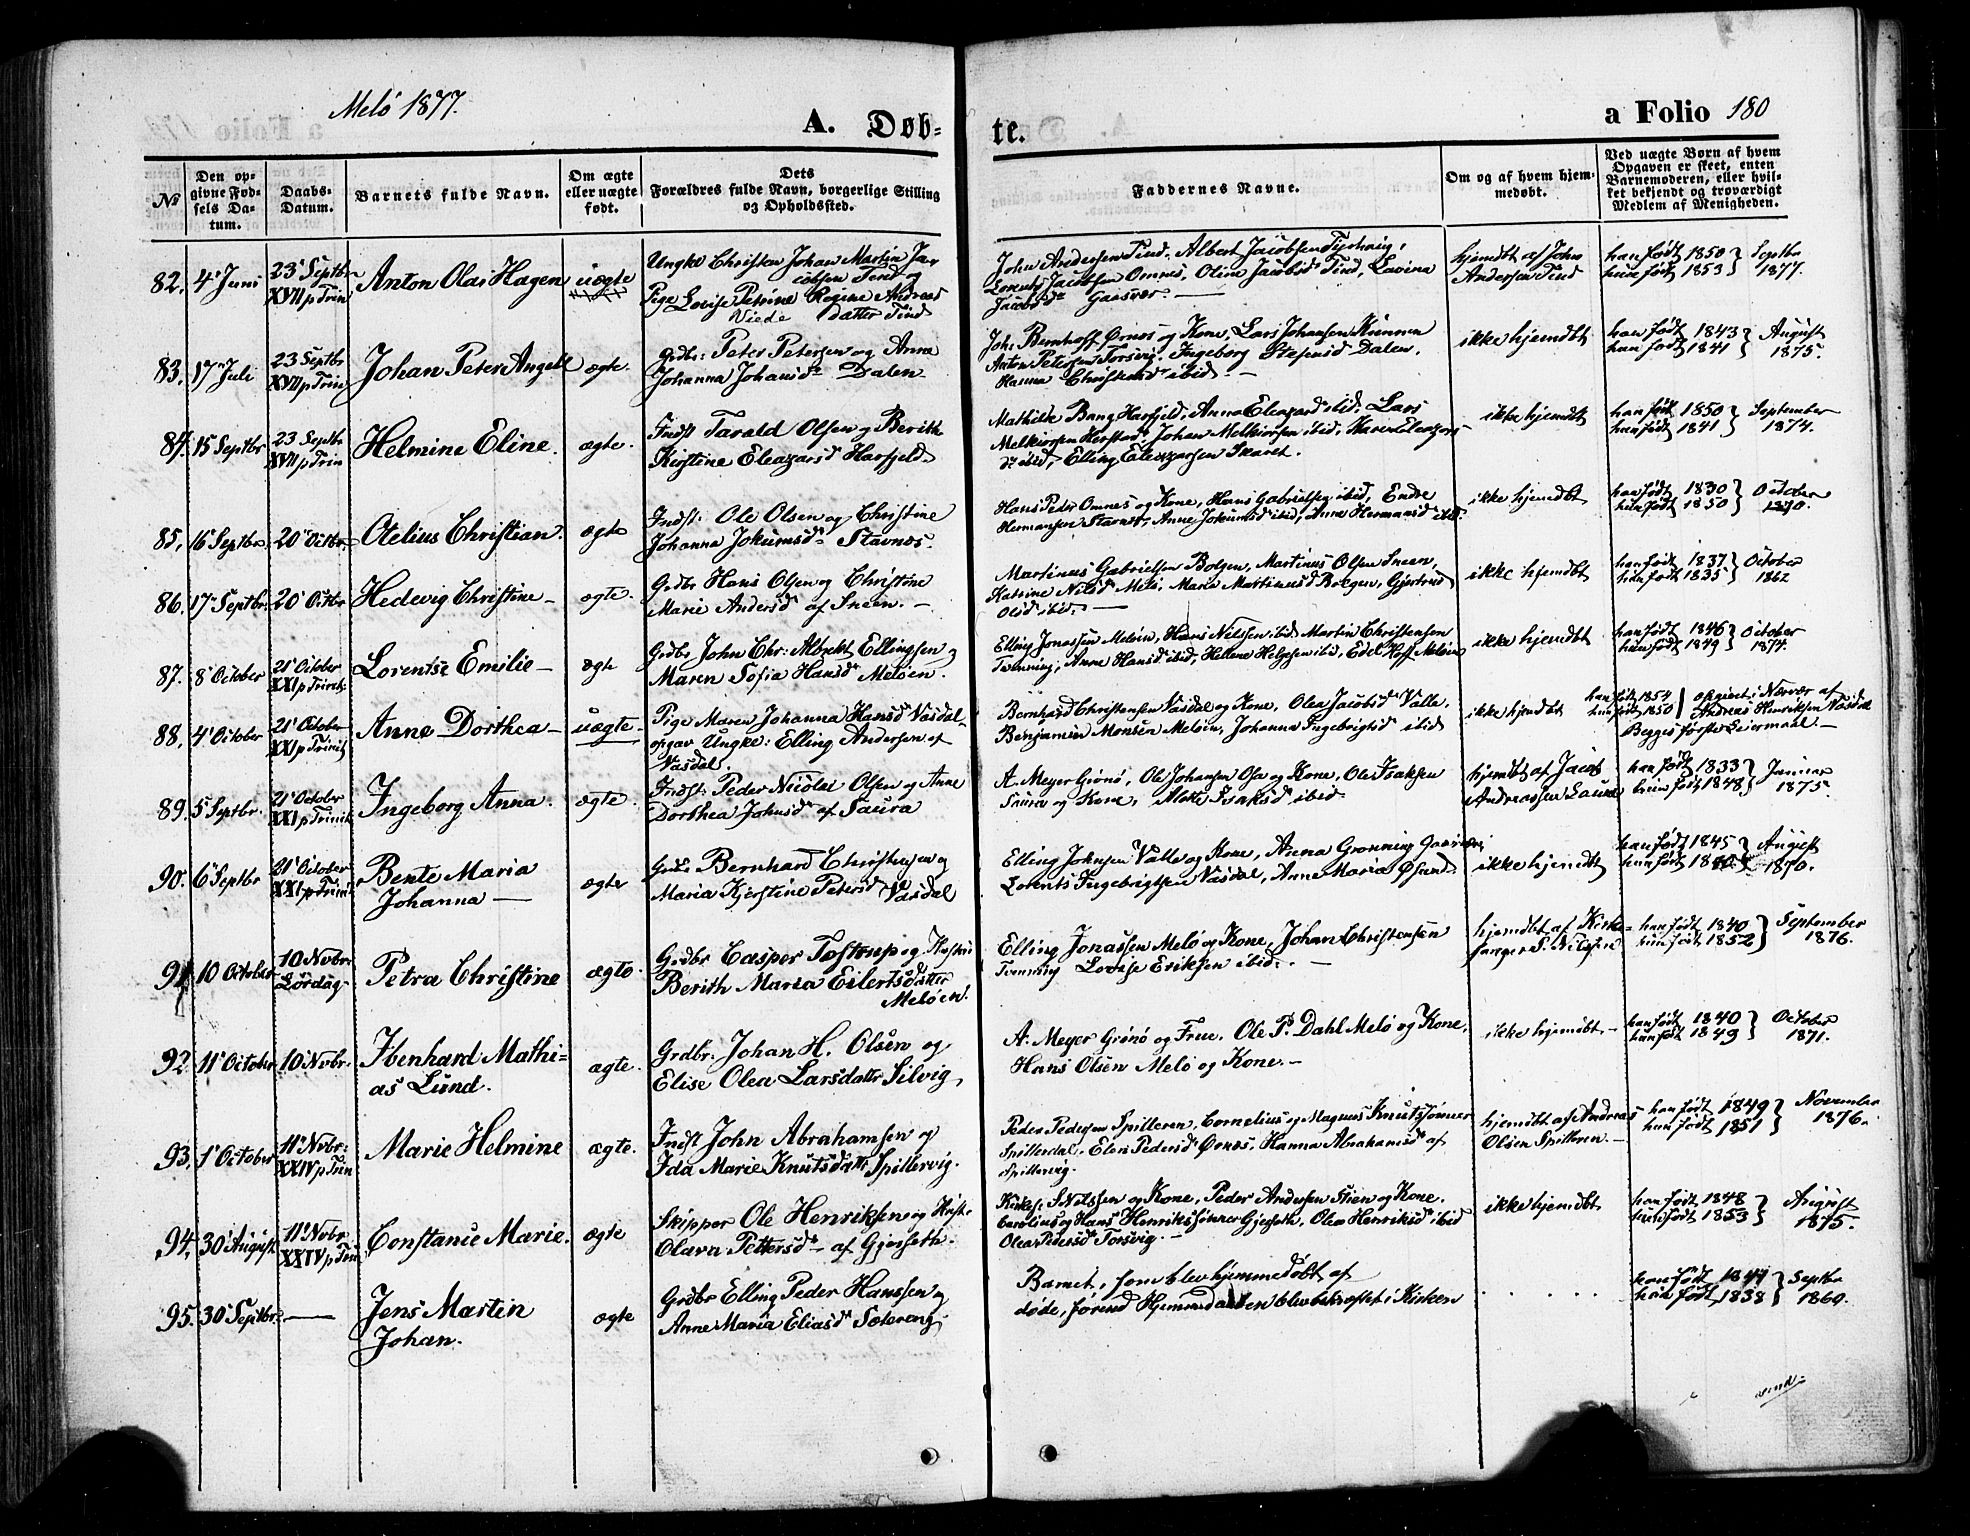 Melö 1877.
A. Døb-
te.
a Folio 180
No
Den op-
givne Fød-
sels Da-
tum.
Daabs-
Datum.
Barnets fulde Navn.
Om ægte
eller uægte
født.
Dets
Forældres fulde Navn, borgerlige Stilling
og Opholdssted.
Faddernes Navne.
Om og af hvem hjem-
medøbt.
Ved uægte Børn af hvem
Opgaven er skeet, enten
Barnemoderen, eller hvil-
ket bekjendt og troværdigt
Medlem af Menigheden.
82. 4 Juni
23 Septbr
XVII p Trin
Anton Olai Hagen
uægte
Ungke Christen Johan Martin Ja-
cobsen Tind og
Pige Lovise Petrine Regine Andreas
datter Tind
John Andersen Tind, Albert Jacobsen
Lorents Jacobsen Omnes, Oline Jacobsd Tind, Lavina
Jacobsdr Gaasvær. —
hjemdt af John
Andersen Tind
han født 1850
hun født 1853
Septbr
1877.
83. 17 Juli
23 Septbr
XVII p Trin
Johan Peter Angell
ægte.
Grdbr: Peter Petersen og Anna
Johanna Johansdr Dalen
Joh. Bernhoff Ørnes og Kone, Lars Johansen Kunnen
Anton Petersen Torsvig, Ingeborg Stefensd Dalen,
Hanna Christensd ibid. —
ikke hjemdt
han født 1843
hun født 1841
August
1875.
84. 15 Septbr
23 Septbr
XVII p Trin
Helmine Eline.
ægte.
Indst Tarald Olsen og Berith
Kirstine Eleazarsd Harfjeld.
Mathilde Bang Harfjeld, Anna Eleazard ibid, Lars
Melkiorsen Herstad, Johan Melkiorsen ibid, Karen Eleazars-
dr ibid, Elling Eleazarsen Skaret.
ikke hjemdt
han født 1850
hun født 1841
September
1874.
85. 16 Septbr.
20 Octbr.
Otelius Christian.
ægte
Indst: Ole Olsen og Christine
Johanna Jokumsdr Stavnes.
Hans Peder Omnes og Kone, Hans Gabrielsen ibid, Endre
Hermansen Stavnes, Anne Jokumsd ibid, Anne Hermansd ibid.
ikke hjemdt
han født 1830
hun født 1850
October
1870.
86. 17 Septbr.
20 Octbr
Hedevig Christine —
ægte.
Grdbr Hans Olsen og Christine
Marie Andersd af Sneen. —
Martinus Gabrielsen Bolgen, Martinus Olsen Sneen,
Katrine Nilsd Melö, Marie Martinusd Bolgen, Gjertrud
Olsd ibid. —
ikke hjemdt
han født 1837
hun født 1835
October
1862
87. 8 October
21 October
XXI p Trinit.
Lorentse Emilie —
ægte
Grdbr John Chr: Albrekt Ellingsen og
Maren Sofia Hansd Melöen.
Elling Jonassen Melöen, Hans Nilssen ibid, Martin Christensen
Tvenning, Anne Hansd ibid, Hellene Helgesen ibid, Edel Hoff Melöen
ikke hjemdt
han født 1846
hun født 1849
October
1874.
88. 4 October
21 October
XXI p Trinit
Anne Dorthea —
uægte
Pige Maren Johanna Hansd Vasdal,
opgav Ungke: Elling Andersen af
Vasdal.
Bernhard Christensen Vasdal og Kone, Olea Jacobsd Valle,
Benjamin Monsen Melöen, Johanna Ingebrigtsd ibid
ikke hjemdt
han født 1854
hun født 1850
opgivet i Nærvær af
Andreas Henriksen Vasdal
Begges første Leiermaal. —
89. 5 Septbr.
21 October
XXI p Trinit
Ingeborg Anna.
ægte.
Indst: Peder Nicolai Olsen og Anne
Dorthea Johnsdr af Saura
A. Meyer Grönö, Ole Johansen Osa og Kone, Ole Isaksen
Saura og Kone, Mette Isaksd ibid —
hjemdt af Jacob
Andreassen Saura
han født 1833
hun født 1848
Januar
1875.
90. 6 Septbr
21 October
XXI p Trinit
Bente Maria
Johanna —
ægte
Grdbr Bernhard Christensen og
Maria Kjerstine Petersd Vasdal
Elling Johnsen Valle og Kone, Anna Grønning
Lorents Ingebrigtsen Vasdal, Anne Maria Øsund
ikke hjemdt
han født 1845
hun født
August
1870.
91 10 October
10 Novbr
Lördag
Petra Christine
ægte
Grdbr Casper Tostrup og Hustru
Berith Maria Eilertsdatter
Melöen.
Elling Jonassen Melö og Kone, Johan Christensen
Tvenning Lovise Eriksen ibid. —
hjemdt af Kirke-
sanger S. Nilssen
han født 1840
hun født 1852
September
1876.
92 11 October
10 Novbr.
Ibenhard Mathi-
as Lund.
ægte.
Grdbr: Johan H. Olsen og
Elise Olea Larsdattr Silvig,
A. Meyer Grönö og Frue, Ole P. Dahl Melö og Kone,
Hans Olsen Melö og Kone. —
ikke hjemdbt. —
han født 1840
hun født 1849
October
1871.
93. 1 October
11 Novbr:
XXIV p Trin
Marie Helmine
ægte.
Indst John Abrahamsen og
Ida Marie Knutsdattr Spillervig.
Peder Pedersen Spilleren, Cornelius og Magnus Knutssönner
Spillerdal, Elen Pedersd Ørnes, Hanna Abrahamsd af
Spillervig.
hjemdbt af Andreas
Olsen Spilleren —
han født 1849
hun født 1851
November
1876.
94. 30 August
11 Novbr.
XXIV p Trin
Constance Marie.
ægte
Skipper Ole Henriksen og Hust:
Olava Pettersdr af Gjerseth.
Kirkes: S Nilssen og Kone, Peder Andersen Stien og Kone,
Carolius og Hans Henrikssönner Gjerseth, Olea Henriksd ibid
Olea Pedersd Torsvig. —
ikke hjemdbt
han født 1848
hun født 1853
August
1875.
95. 30 Septbr.
—
Jens Martin
Johan.
ægte
Grdbr Elling Peder Hanssen og
Anne Maria Eliasdr Sætereng.
Barnet, som blev hjemmedøbt af
døde, förend Hjemmedaaben blev bekræftet i Kirken
han født 1847
hun født 1838
Septbr
1869.
vend